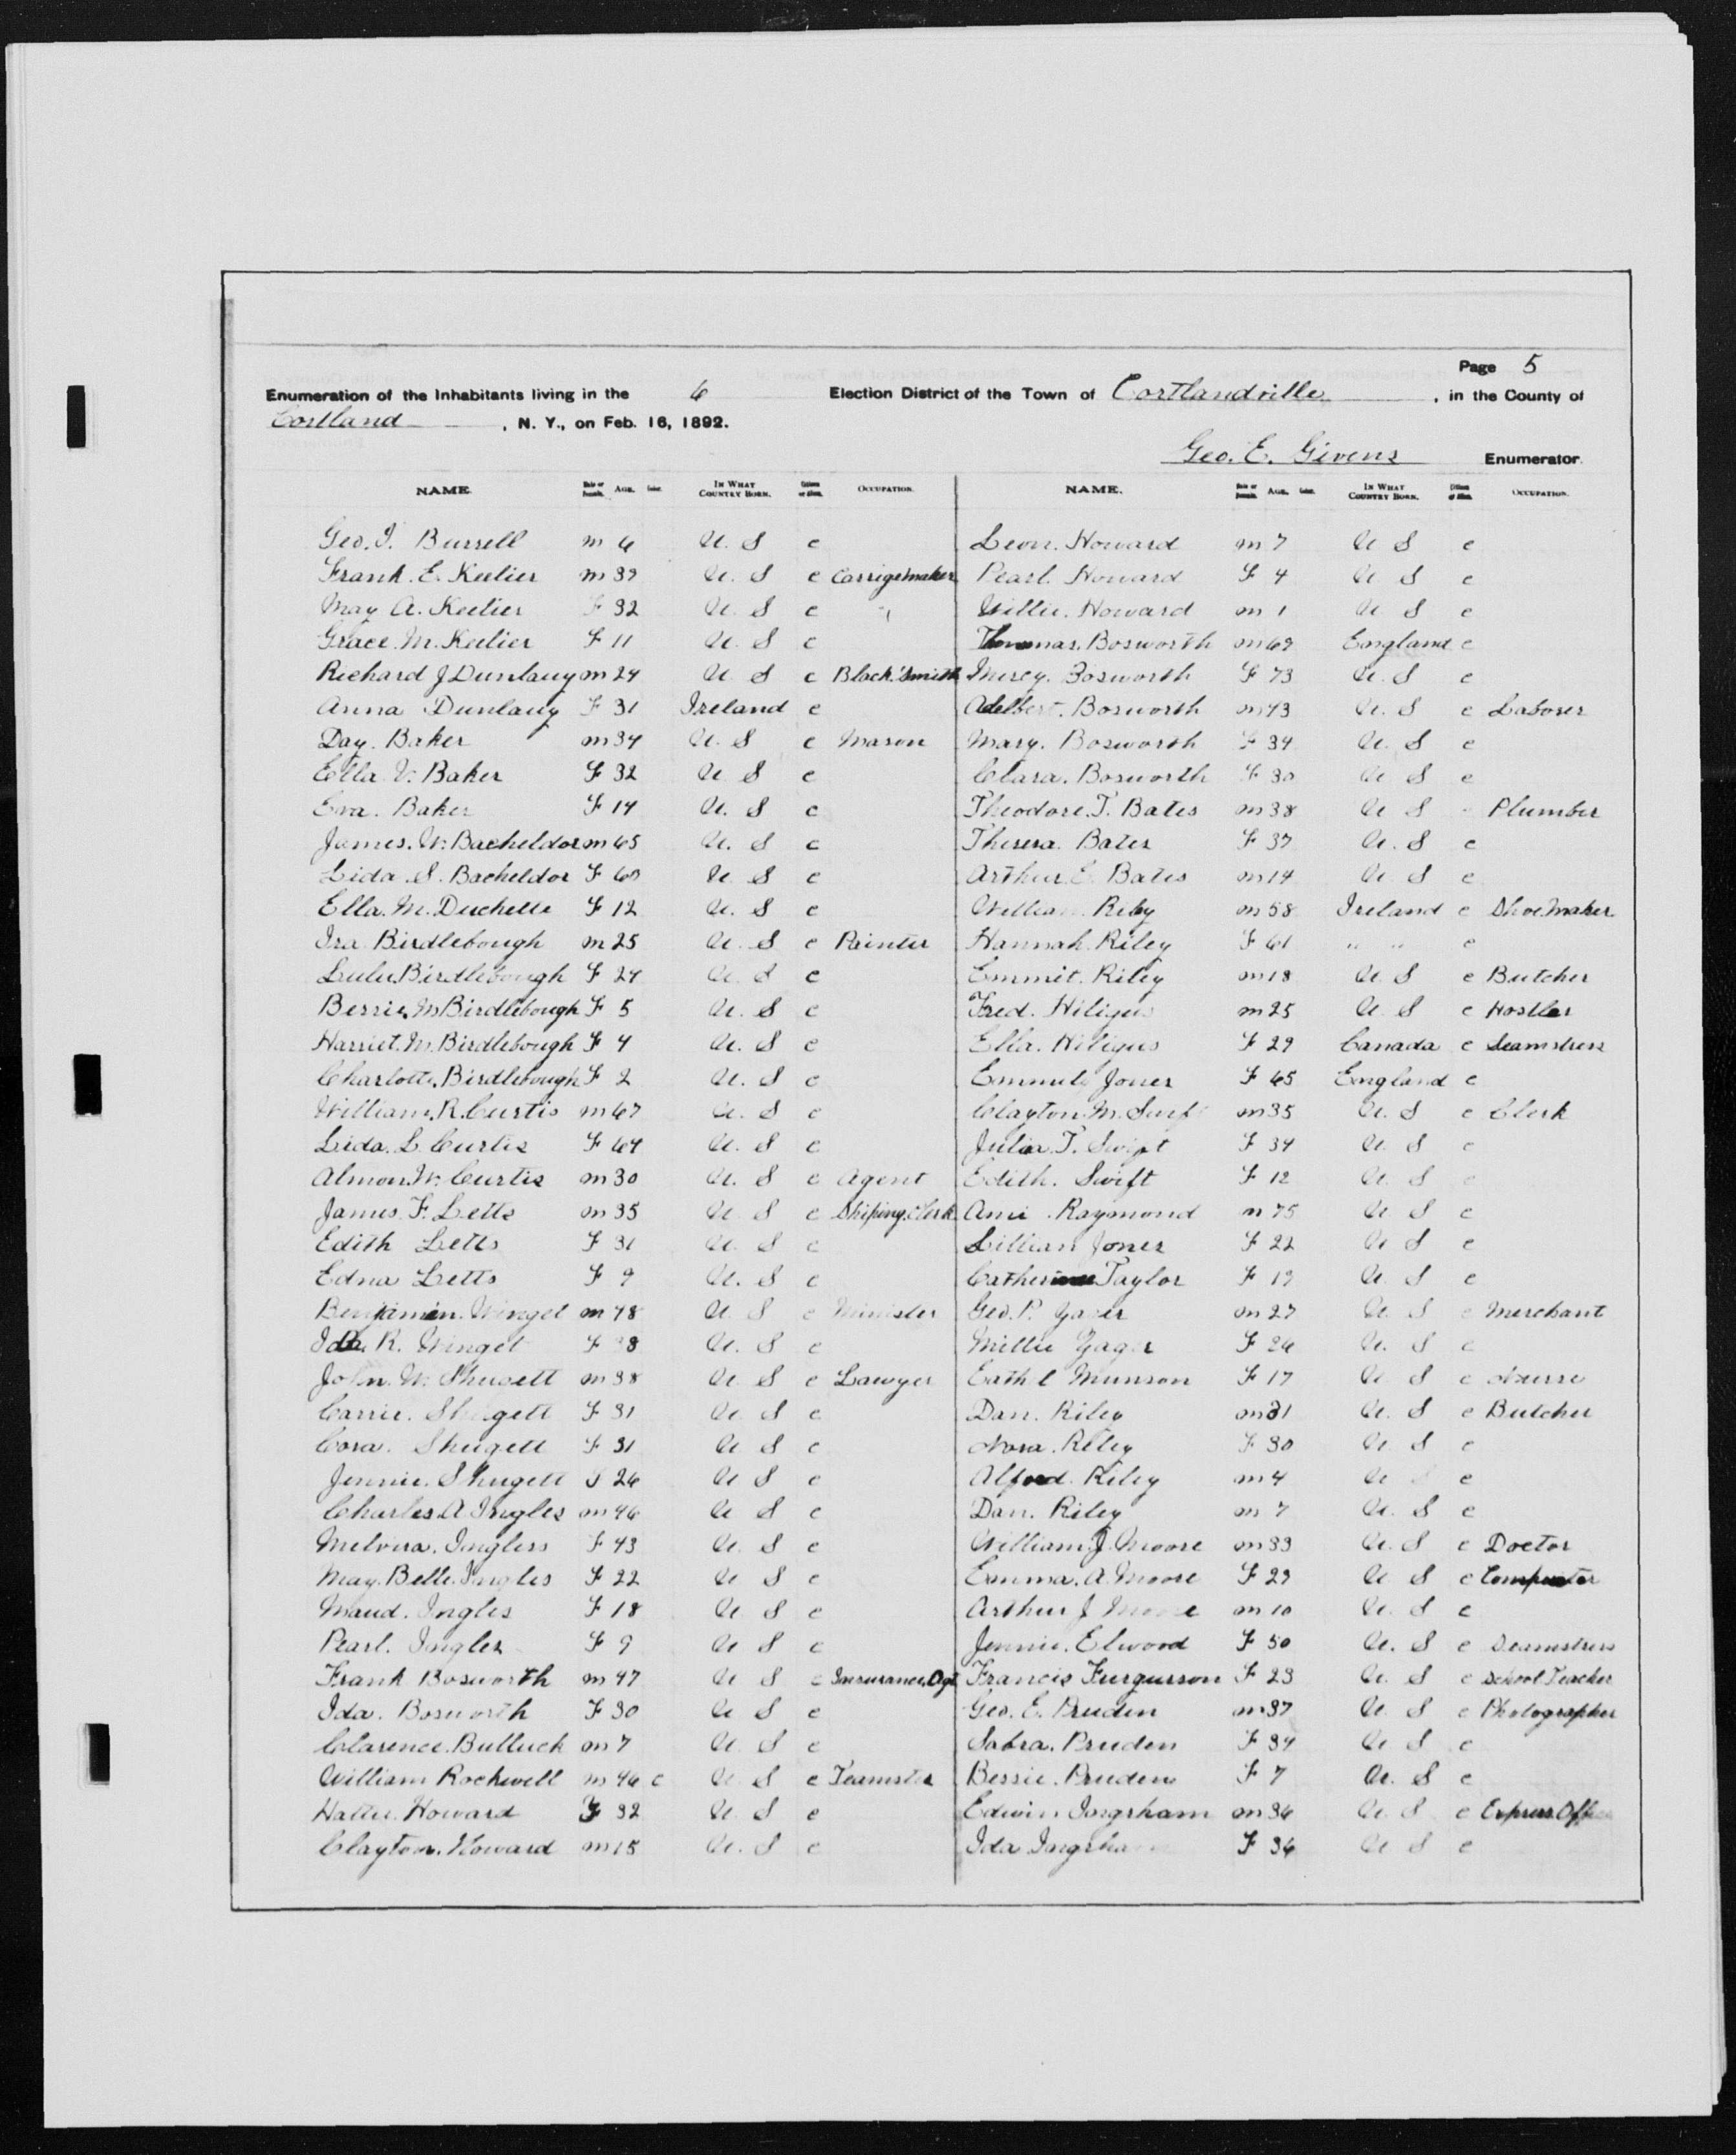 Page 5
Enumeration of the Inhabitants living in the 6 Election District of the Town of Cortlandville, in the County of
Cortland, N. Y., on Feb. 16, 1892.
Geo. E. Givens Enumerator.
NAME. Male or Female. AGE. Color. IN WHAT COUNTRY BORN. Citizen or Alien. OCCUPATION.
Geo. I. Burrell m 6 U. S c
Frank. E. Keelier m 39 U. S c Carrigemaker
May A. Keelier F 32 U. S c "
Grace. M. Keelier F 11 U. S c
Richard J Dunlauy m 24 U S c Black Smith
Anna Dunlauy F 31 Ireland c
Day. Baker m 34 U. S c Mason
Ella V. Baker F 32 U S c
Eva. Baker F 14 U. S c
James. W. Bacheldor m 65 U. S c
Lida. S. Bacheldor F 60 U. S c
Ella. M. Duchette F 12 U. S c
Ira Birdlebough m 25 U. S c Painter
Lulu Birdlebough F 24 U. S c
Bessie M Birdlebough F 5 U. S c
Harriet. M. Birdlebough F 4 U. S c
Charlotte Birdlebough F 2 U. S c
William. R. Curtis m 67 U. S c
Lida. L. Curtis F 64 U. S c
Almon. W. Curtis m 30 U. S c Agent
James. F. Letts m 35 U S c Shiping. Clerk
Edith Letts F 31 U. S c
Edna Letts F 9 U. S c
Benjamin. Winget m 48 U. S c Minister
Ida R. Winget F 38 U. S c
John. W. Shugett m 38 U S c Lawyer
Carrie. Shugett F 31 U S c
Cora. Shugett F 31 U S c
Jennie. Shugett F 26 U S c
Charles A Ingles m 46 U S c
Melvira. Ingless F 43 U. S c
May. Belle. Ingles F 22 U S c
Maud. Ingles F 18 U S c
Pearl. Ingles F 9 U S c
Frank Bosworth m 47 U S c Insurance. Agt
Ida. Bosworth F 30 U S c
Clarence. Bulluck m 7 U S c
William Rockwell m 46 c U S c Teamster
Hattie. Howard F 32 U. S c
Clayton. Howard m 15 U. S c
NAME. Male or Female. AGE. Color. IN WHAT COUNTRY BORN. Citizen or Alien. OCCUPATION.
Leon. Howard m 7 U S c
Pearl. Howard F 4 U S c
Willie. Howard m 1 U S c
Thommas. Bosworth m 69 England c
Mercy. Bosworth F 73 U. S c
Adelbert. Bosworth m 43 U. S c Laborer
Mary. Bosworth F 34 U. S c
Clara. Bosworth F 30 U S c
Theodore. T. Bates m 38 U S Plumber
Theresa. Bates F 37 U. S c
Arthur. E. Bates m 14 U. S c
William. Riley m 58 Ireland c Shoe Maker
Hannah. Riley F 61 " " c
Emmit. Riley m 18 U. S c Butcher
Fred. Hiligus m 25 U S c Hostler
Ella. Hiligus F 29 Canada c Seamstress
Jones F 65 England c
Clayton. M. Swift m 35 U. S c Clerk
Julia. T. Swift F 34 U. S c
Edith. Swift F 12 U. S c
Ami. Raymond m 75 U S c
Lillian Jones F 22 U S c
Catherine Taylor F 19 U. S c
Geo. P. Yager m 27 U. S c Merchant
Millie Yager F 26 U. S c
Eathel Munson F 17 U S c Nurse
Dan. Riley m 31 U. S c Butcher
Nora. Riley F 30 U. S c
Alfred. Riley m 4 U S c
Dan. Riley m 7 U. S c
William. J. Moore m 33 U. S c Doctor
Emma. A. Moore F 29 U S c
Arthur J Moore m 10 U. S c
Jennie. Elwood F 50 U. S c Seamstress
Francis Furgusson F 23 U. S c School Teacher
Geo. E. Pruden m 37 U. S c Photographer
Sabra. Pruden F 34 U S c
Bessie. Pruden F 7 U. S c
Edwin Ingrsham m 36 U. S c Express Office
Ida Ingrsham F 36 U S c